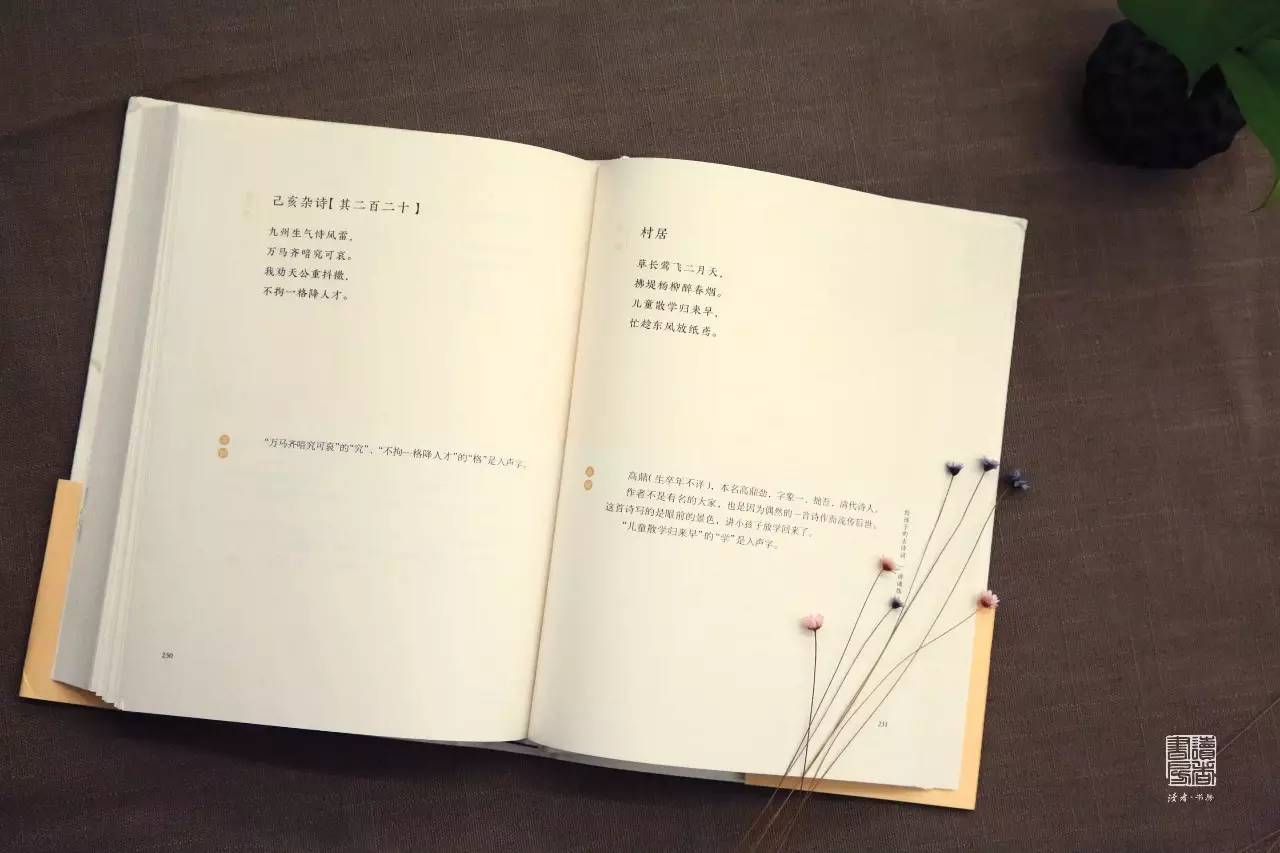 己亥杂诗【其二百二十】
九州生气恃风雷，
万马齐喑究可哀。
我劝天公重抖擞，
不拘一格降人才。
“万马齐喑究可哀”的“究”、“不拘一格降人才”的“格”是入声字。
230
村居
草长莺飞二月天，
拂堤杨柳醉春烟。
儿童散学归来早，
忙趁东风放纸鸢。
高鼎（生卒年不详），本名高鼎劲，字象一、拙吾，清代诗人。
作者不是有名的大家，也是因为偶然的一首诗作而流传后世。
这首诗写的是眼前的景色，讲小孩子放学回来了。
“儿童散学归来早”的“学”是入声字。
给孩子的古诗词
231
讀者書房
读者·书房